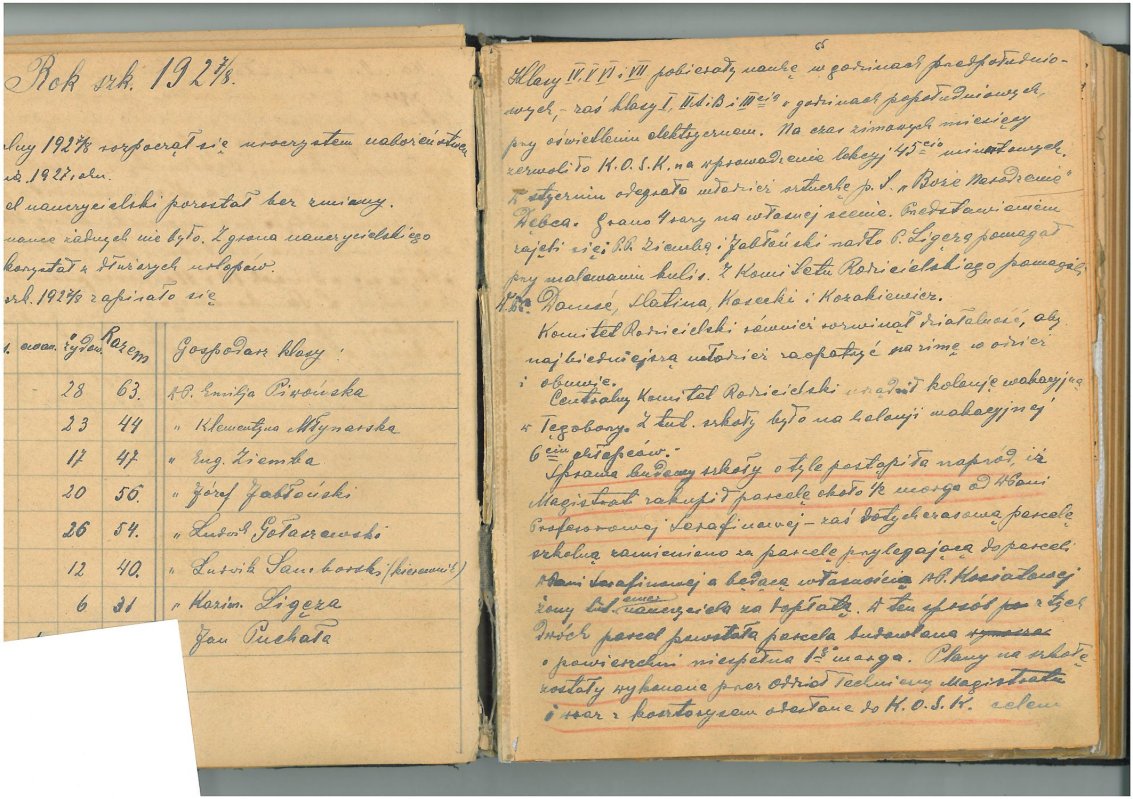 Rok szk. 1927/8.
olny 1927/8 rozpoczął się uroczystem nabożeństwem
1927 r.
nauczycielski pozostał bez zmiany.
żadnych nie było. Z grona nauczycielskiego
korzystał z dłuższych urlopów.
szk. 1927/8 zapisało się
ewan. żydow. Razem Gospodarz klasy:
28 63. Wp. Emilja Piwońska
23 44 " Klementyna Młynarska
17 47 " Eug. Ziemba
20 56. " Józef Jabłoński
26 54. " Ludwik Gołaszewski
12 40. " Ludwik Samborski (kierownik)
6 31 " Kazim. Ligęza
Jan Puchała
Klasy IV. V VI i VII pobierały naukę w godzinach przedpołudnio-
wych, - zaś klasy I, II A i B i III cia w godzinach popołudniowych,
przy oświetleniu elektrycznem. Na czas zimowych miesięcy
zezwoliło K.O.S.K. na wprowadzenie lekcyj 45 cio minutowych.
W styczniu odegrała młodzież sztuczkę p. t. „Boże Narodzenie"
Dębca. Grano 4 razy na własnej scenie. Przedstawieniem
zajęli się: P.P. Ziemba i Jabłoński nadto P. Ligęza pomagał
przy malowaniu kulis. Z Komitetu Rodzicielskiego pomagali
Slatina, Kosecki i Kozakiewicz.
Komitet Rodzicielski również rozwinął działalność, aby
najbiedniejszą młodzież zaopatrzyć na zimę w odzież
i obuwie.
Centralny Komitet Rodzicielski urządził kolonję wakacyjną
w Tęgoborzy. Z tut. szkoły było na kolonji wakacyjnej
6 ciu chłopców.
Sprawa budowy szkoły o tyle postąpiła naprzód, iż
Magistrat zakupił parcelę około 1/2 morga od WPani
Profesorowej Serafinowej – zaś dotychczasową parcelę
szkolną zamieniono za parcelę przylegającą do parceli
WPani Serafinowej a będącą własnością Wp. Kosiatowej
żony tut. emer. nauczyciela za dopłatą. W ten sposób po z tych
dwóch parcel powstała parcela budowlana
o powierzchni niespełna 1 go morga. Plany na szkołę
zostały wykonane przez Oddział Techniczny Magistratu
i wraz z kosztorysem odesłane do K.O.S.K. celem